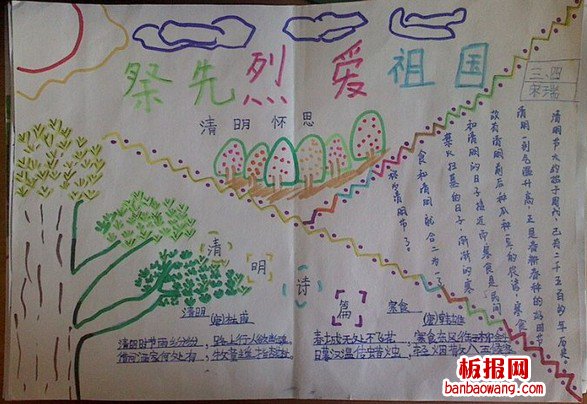 祭先烈 爱祖国
清明怀思
三、四
清明节大约始于周代,已有二千五百多年历史。
清明一到气温升高,正是春耕春种的好时节
故有清明前后种瓜种豆的农谚,寒食
和清明的日子接近而寒食是民间
禁火扫墓的日子渐渐的寒
食和清明就合二为一了
称为清明节了。
清明诗篇
清明 (唐)杜牧
清明时节雨纷纷,路上行人欲断魂
借问酒家何处有,牧童遥指杏花村
寒食 (唐)韩
春城无处不飞花,寒食东风
日暮汉宫传蜡烛,轻烟散入五侯家
板报网
banbaowang.com